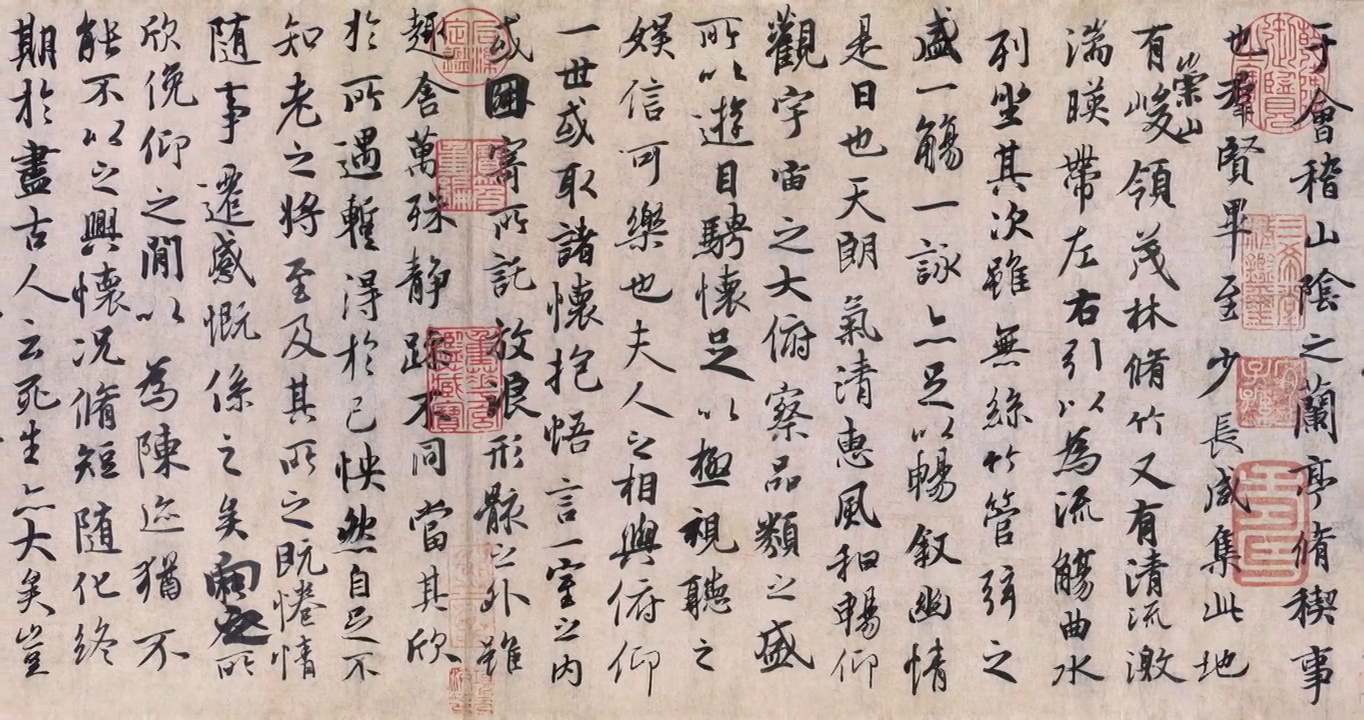 于會稽山陰之蘭亭脩稧事
也羣賢畢至少長咸集此地
有崇山峻領茂林脩竹又有清流激
湍暎帶左右引以為流觴曲水
列坐其次雖無絲竹管弦之
盛一觴一詠亦足以暢敘幽情
是日也天朗氣清惠風和暢仰
觀宇宙之大俯察品類之盛
所以遊目騁懷足以極視聽之
娛信可樂也夫人之相與俯仰
一世或取諸懷抱悟言一室之內
或因寄所託放浪形骸之外雖
趣舍萬殊靜躁不同當其欣
於所遇暫得於己怏然自足不
知老之將至及其所之既惓情
隨事遷感慨係之矣向之所
欣俛仰之閒以為陳迹猶不
能不以之興懷況脩短隨化終
期於盡古人云死生亦大矣豈